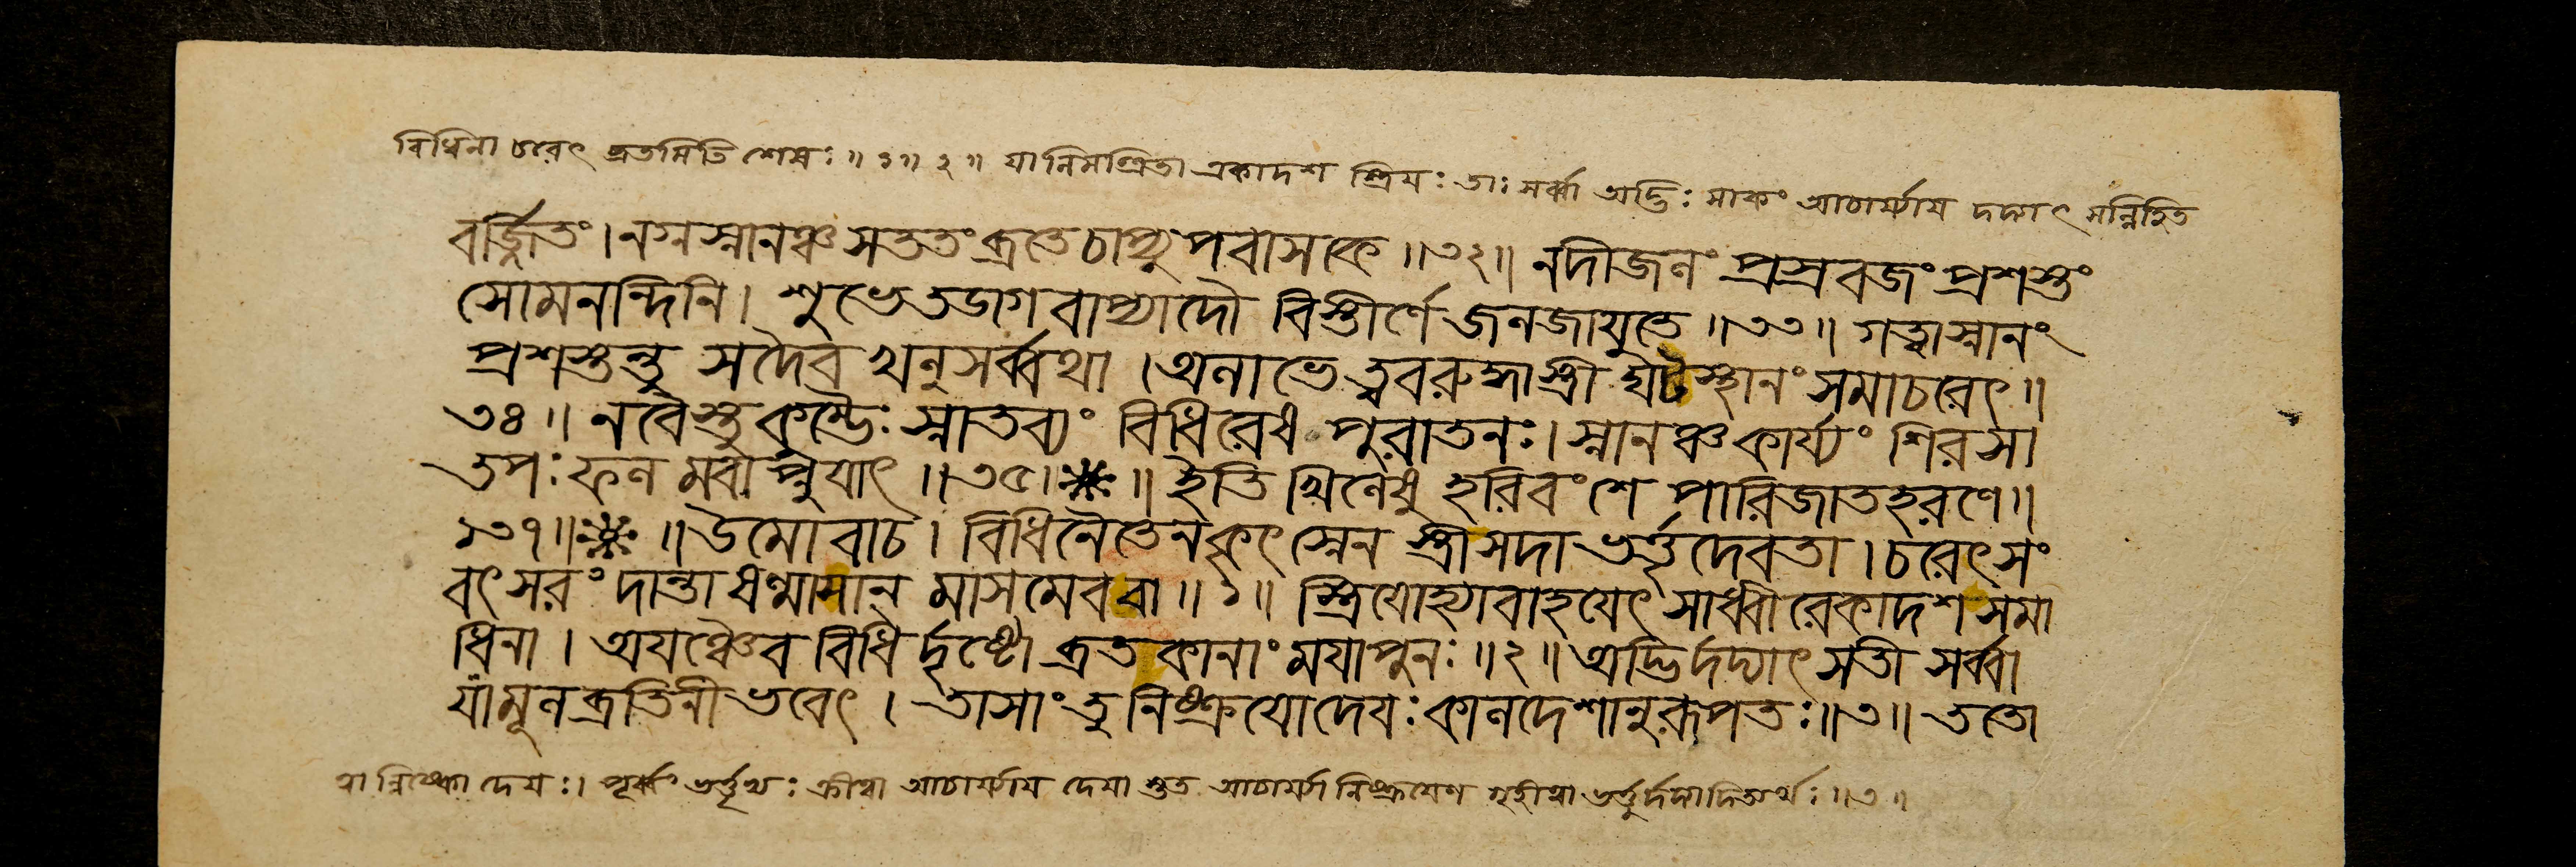 বিধিনা চরেৎ ব্রতমিতি শেষঃ ॥ ১॥ ২ ॥ যা নিমন্ত্রিতা একাদশ স্ত্রিয়ঃ তাঃ সর্ব্বা অদ্ভিঃ সাকং আচার্য্যায় দদ্যাৎ সন্নিহিত
বর্জ্জিতং। নগ্নস্নানঞ্চ সততং ব্রতে চাপ্যুপবাসকে ॥৩২॥ নদীজলং প্রস্রবজং প্রশস্তং
সোমনন্দিনি। শুভে তডাগবাপ্যাদৌ বিস্তীর্ণে জলজাযুতে ॥৩৩॥ গত্বা স্নানং
প্রশস্তন্তু সদৈব খলু সর্ব্বথা । অলাভে ত্ববরুহ্মা স্ত্রী ঘটস্থানং সমাচরেৎ ॥
৩৪ ॥ নবৈস্তু কুম্ভৈঃ স্নাতব্যং বিধিরেষ পুরাতনঃ। স্নানঞ্চ কার্য্যং শিরসা
তপঃ ফলমবাপ্নুযাৎ ॥৩৫॥ ॥ ইতি খিলেষু হরিবংশে পারিজাতহরণে॥
১৩৭॥ ॥ উমোবাচ। বিধিনৈতেন কৃৎস্নেন স্ত্রী সদা ভর্ত্তৃদেবতা । চরেৎ সং
বৎসরং দান্তা ষণ্মাসান্ মাসমেব বা ॥ ১॥ স্ত্রিযোহ্যাবাহযেৎ সাধ্বীরেকাদশ সমা
ধিনা । অযঞ্চৈব বিধির্দৃষ্টো ব্রতকানাং মযা পুনঃ ॥২॥ অদ্ভির্দদ্যাৎ সতী সর্ব্বা
যা মূলব্রতিনী ভবেৎ । তাসাং তু নিষ্ক্রযো দেযঃ কালদেশানুরূপতঃ॥৩॥ ততো
দেয়ঃ। পূর্ব্বং আচার্য্যায় দেয়া আচার্য্য নিষ্ক্রয়েণ গৃহীত্বা ॥৩॥